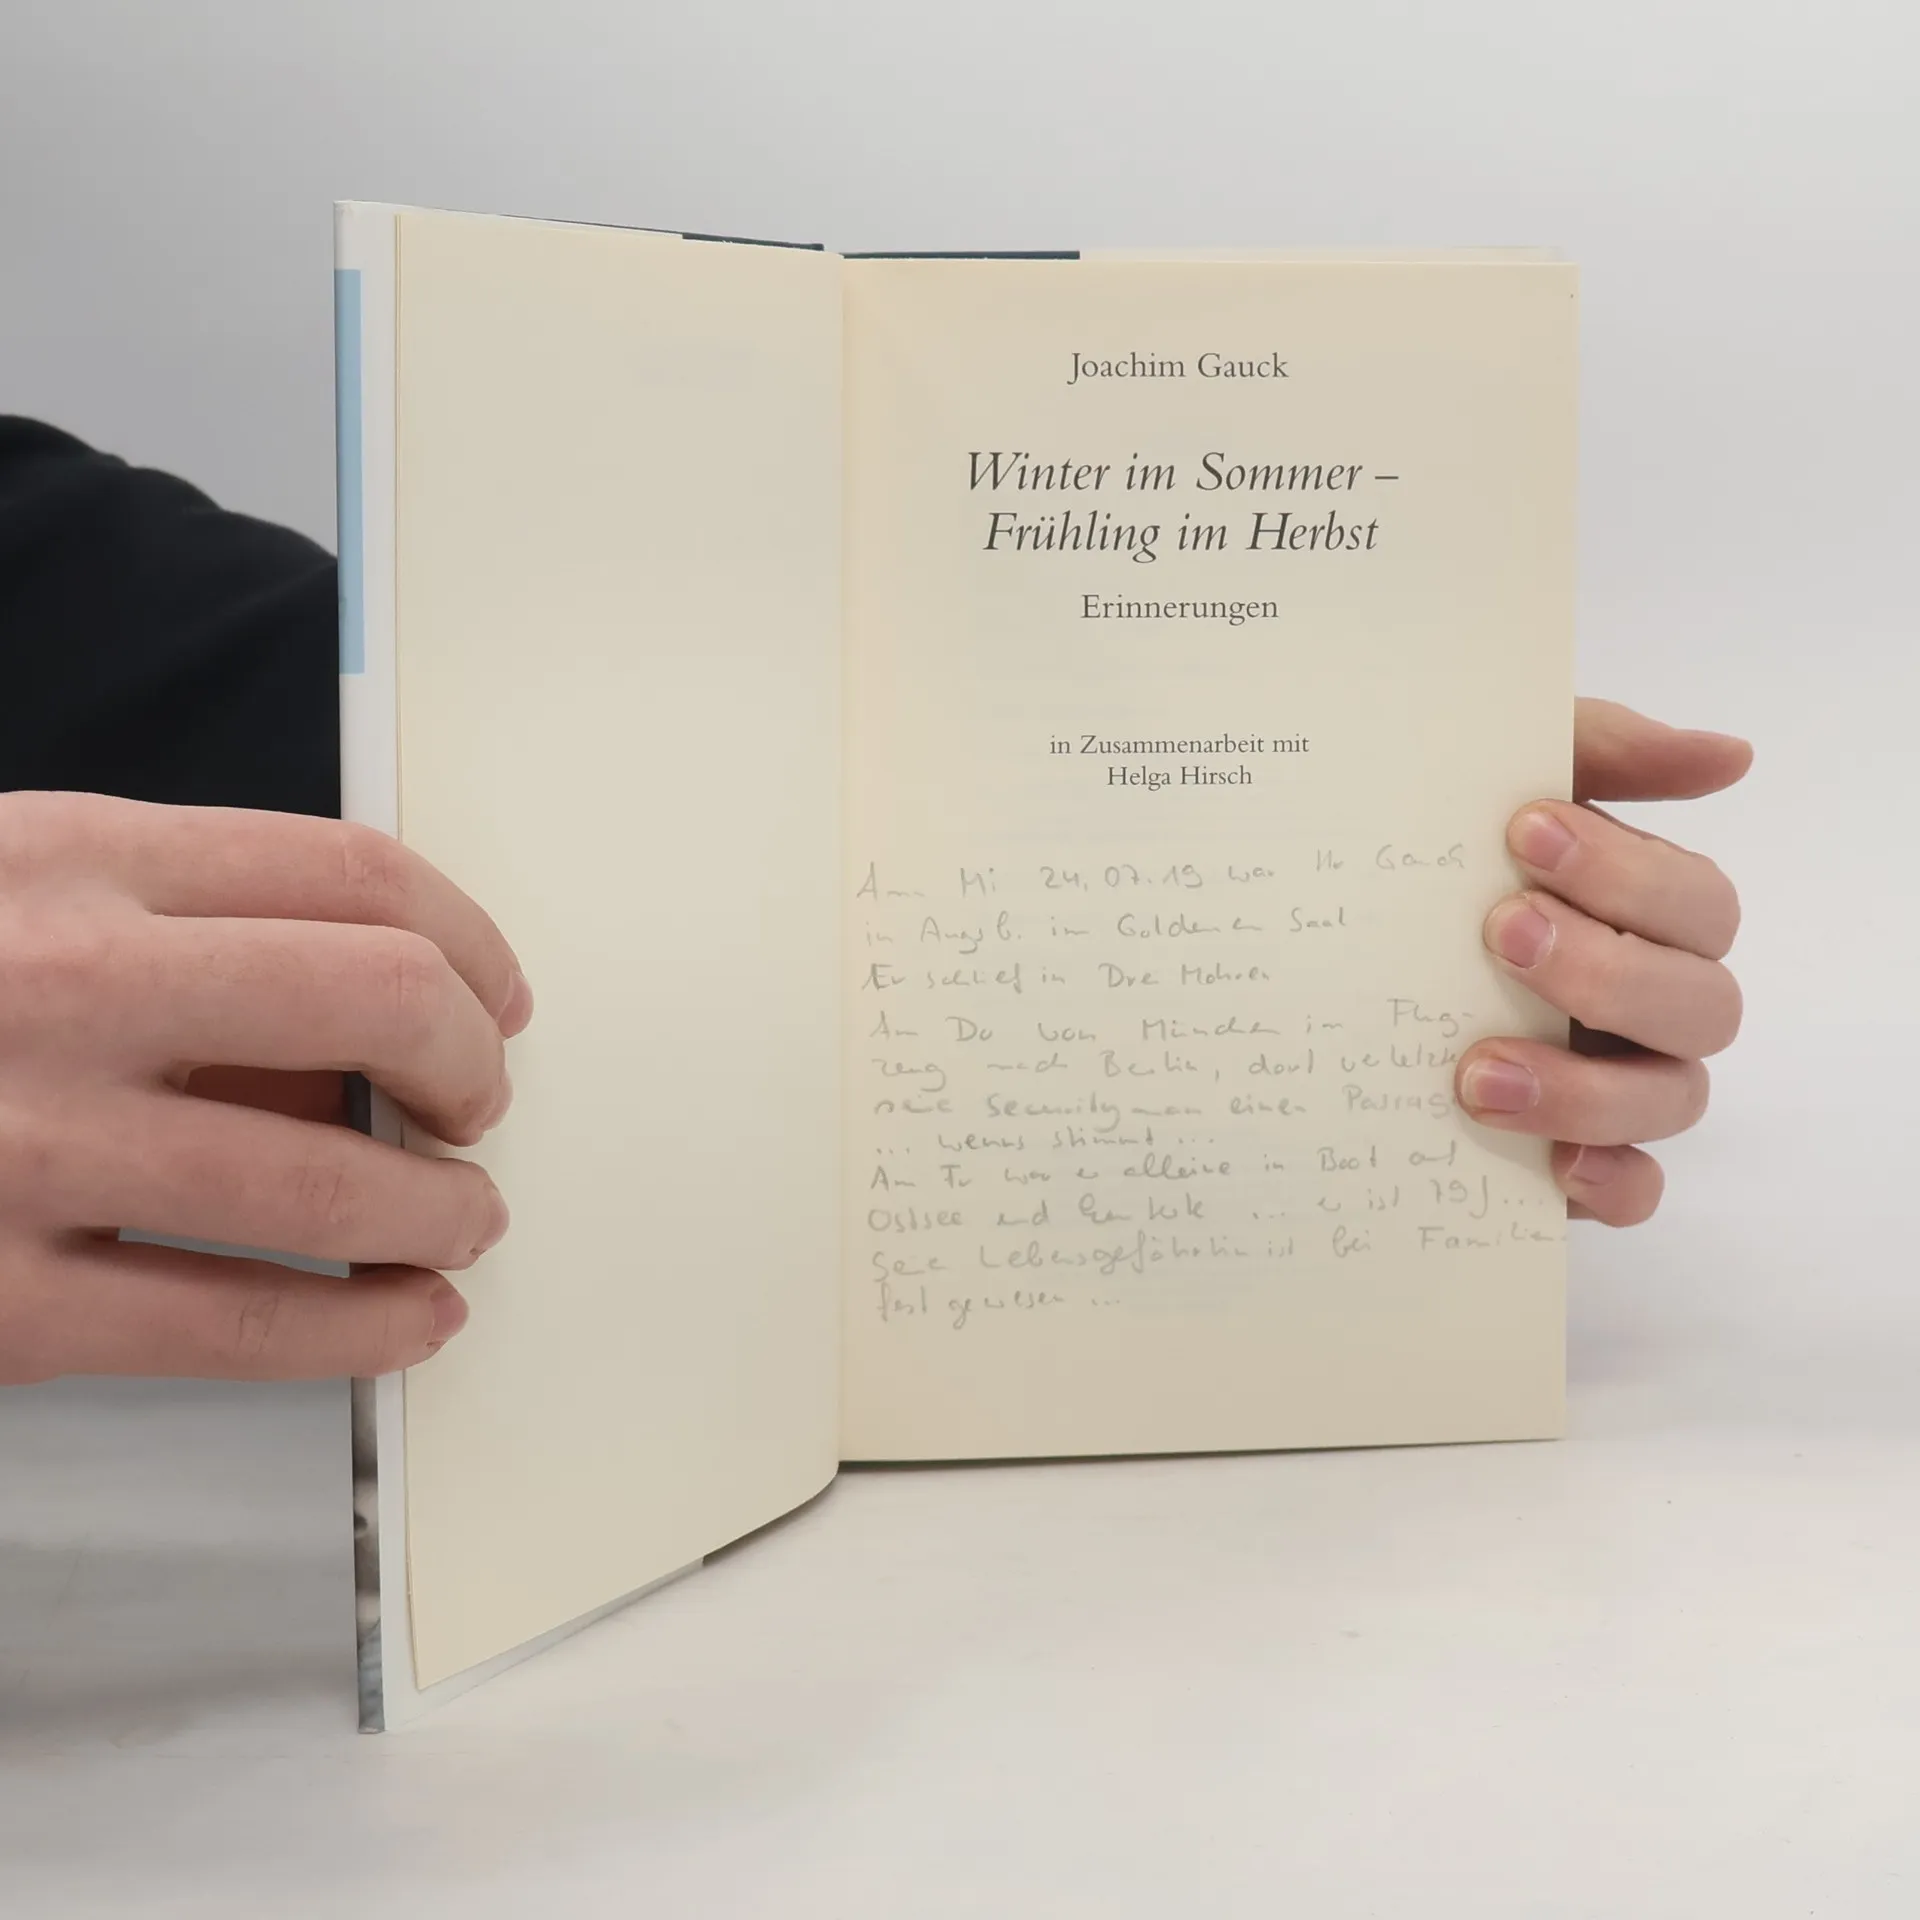 Joachim Gauck
Winter im Sommer –
Frühling im Herbst
Erinnerungen
in Zusammenarbeit mit
Helga Hirsch
Am Mi 24.07.19 war Hr Gauck
in Augsb. im Goldenen Saal
Er schlief in Drei Mohren
Am Do von München im Flug-
zeug nach Berlin, dort verletzte
seie Securityman einen Passag
... wenns stimmt ...
Am Fr war er alleine in Boot auf
Ostsee und kenterte ... er ist 79 J...
Seie Lebensgefährtin ist bei Familien
fest gewesen ...